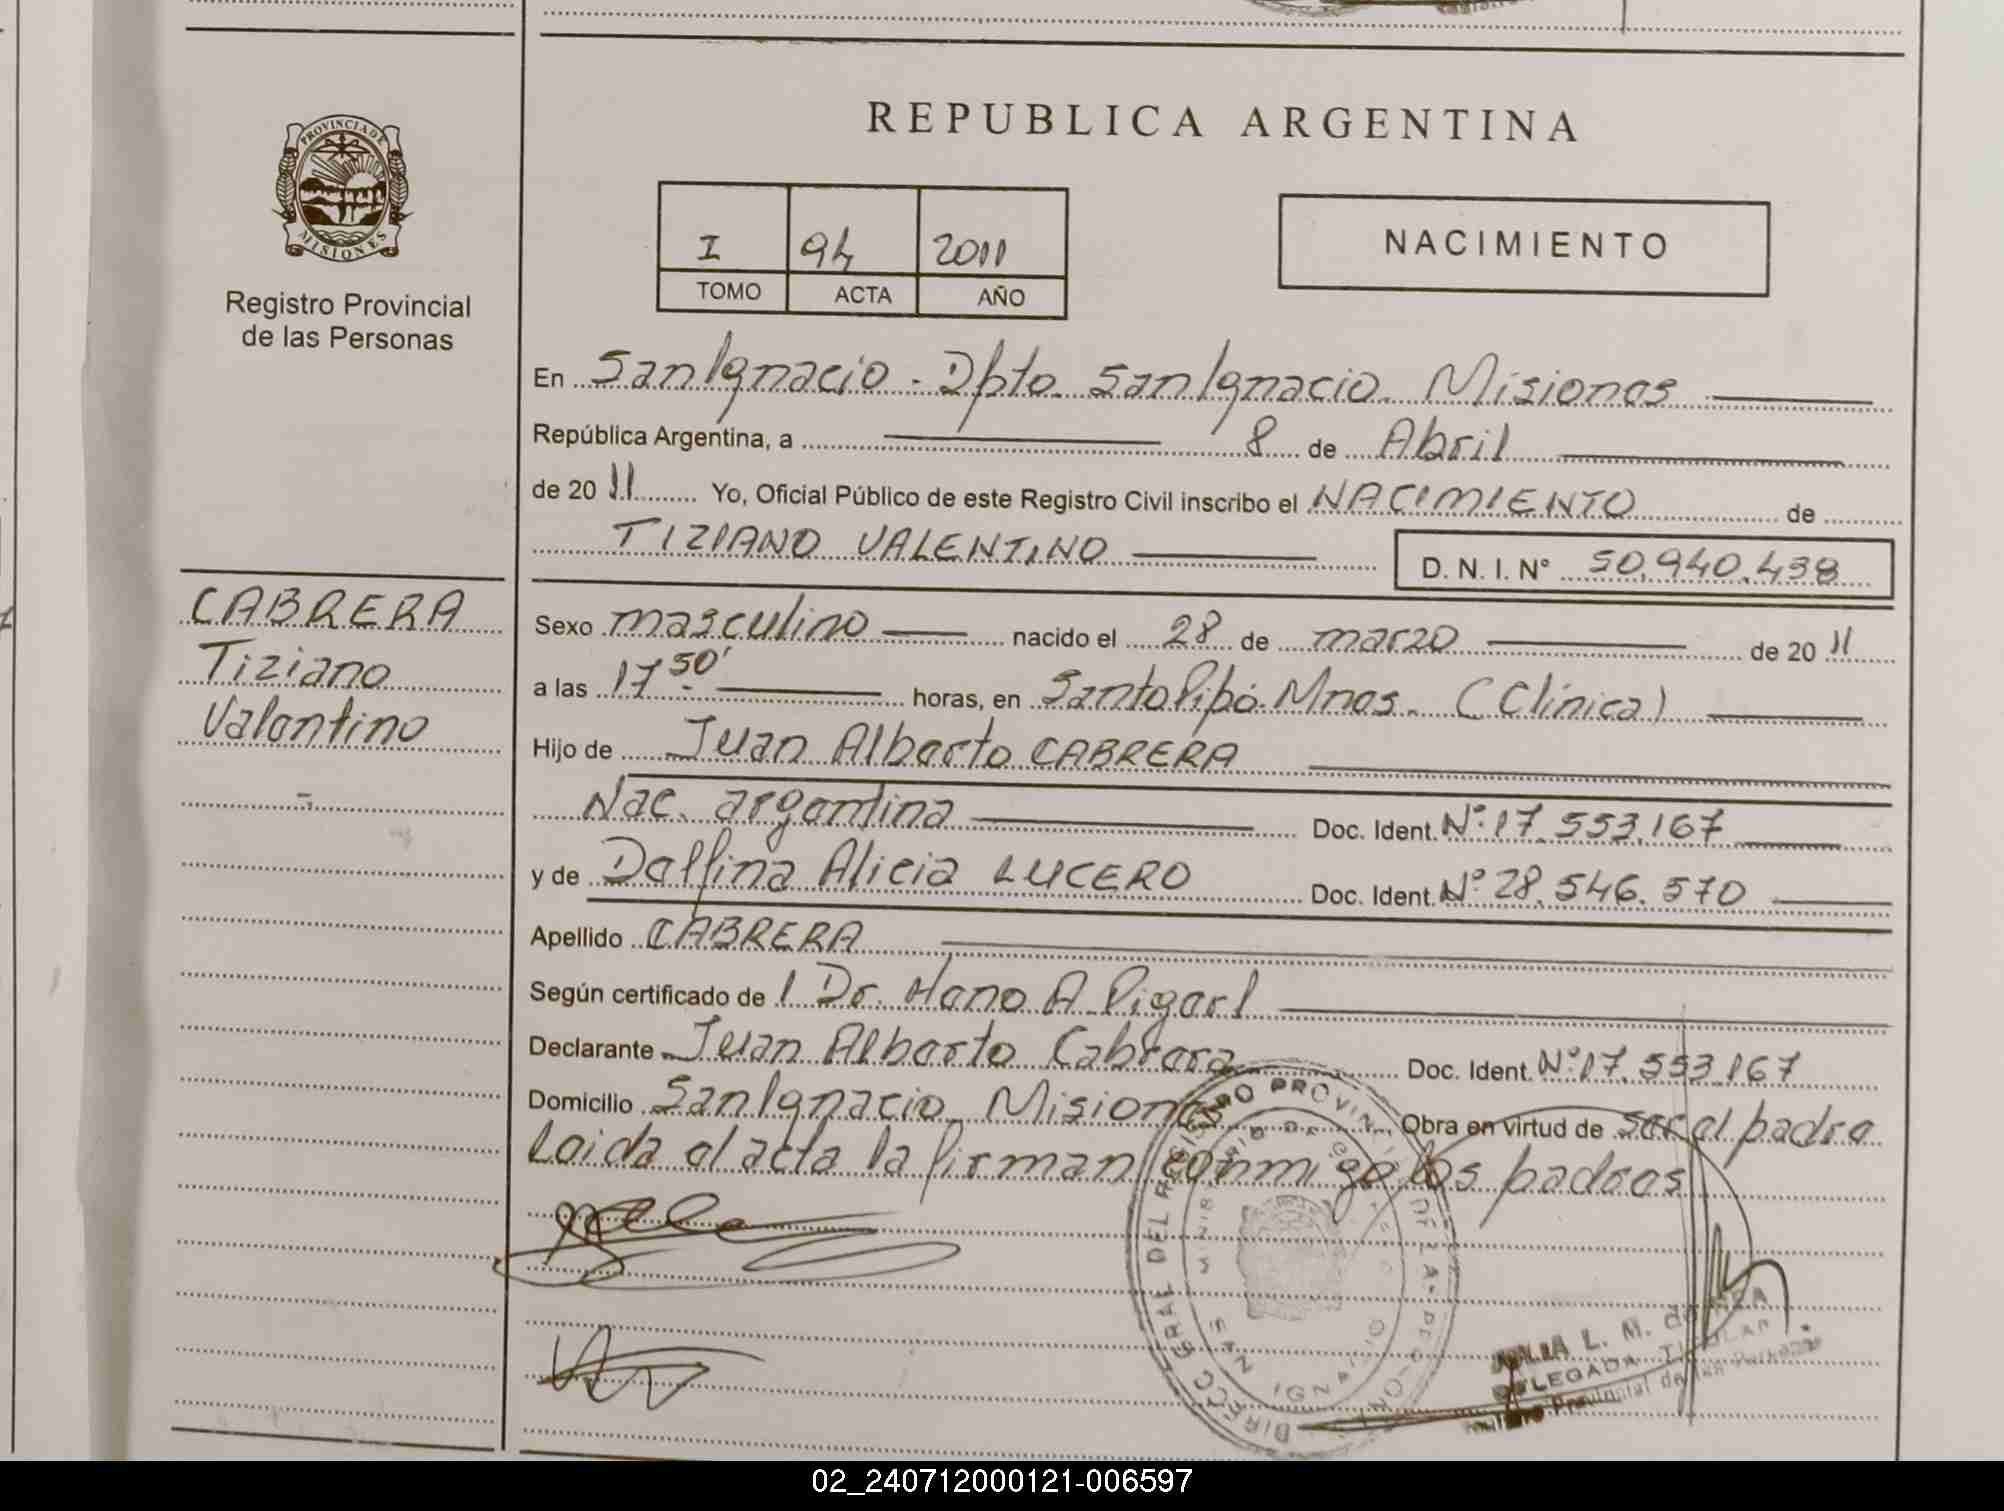 REPUBLICA ARGENTINA
PROVINCIA DE
MISIONES
Registro Provincial
de las Personas
I 94 2011
TOMO ACTA AÑO
NACIMIENTO
En San Ignacio - Dpto. San Ignacio. Misiones
República Argentina, a 8 de Abril
de 20 11 Yo, Oficial Público de este Registro Civil inscribo el NACIMIENTO de
TIZIANO VALENTINO D. N. I. Nº 50.940.438
CABRERA
Tiziano
Valentino
Sexo masculino nacido el 28 de marzo de 20 11
a las 17 50' horas, en Santo Pipó. Mnes. (Clínica)
Hijo de Juan Alberto CABRERA
Nac. argentina Doc. Ident. Nº 17.553.167
y de Delfina Alicia LUCERO Doc. Ident. Nº 28.546.570
Apellido CABRERA
Según certificado de l Dr. A.
Declarante Juan Alberto Cabrera Doc. Ident. Nº 17.553.167
Domicilio San Ignacio Misiones Obra en virtud de ser el padre
Leida el acta la firman conmigo los padres
DIRECC. GRAL DEL REGISTRO PROVINCIAL DE LAS PERSONAS
SAN IGNACIO
L. M. de
DELEGADA TITULAR
Provincial de las Personas
02_240712000121-006597